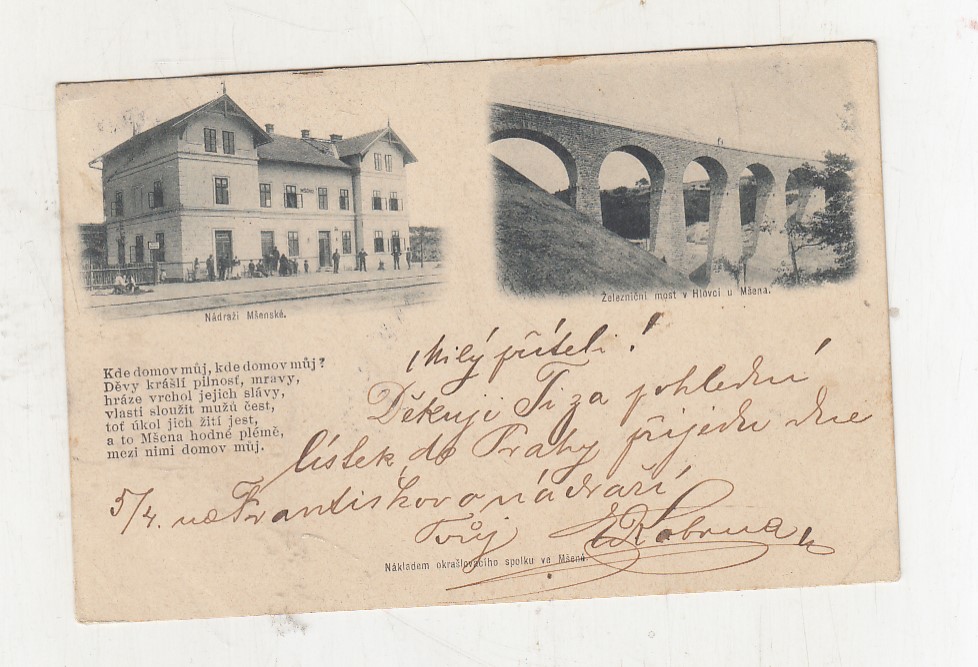 MŠENO
Nádraží Mšenské.
Železniční most v Hlovci u Mšena.
Kde domov můj, kde domov můj?
Děvy krášlí pilnosť, mravy,
hráze vrchol jejich slávy,
vlasti sloužit mužů čest,
toť úkol jich žití jest,
a to Mšena hodné plémě,
mezi nimi domov můj.
Milý příteli!
Děkuji Ti za pohlední
lístek, do Prahy přijedu dne
5/4. na Františkovo nádraží
Tvůj
Nákladem okrašlovacího spolku ve Mšeně